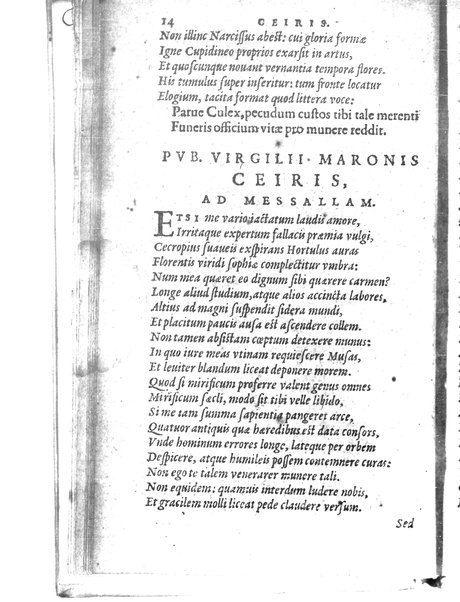 14 CEIRIS.
Non illinc Narcissus abest: cui gloria formæ
Igne Cupidineo proprios exarsit in artus,
Et quoscunque nouant vernantia tempora flores.
His tumulus super inseritur: tum fronte locatur
Elogium, tacita format quod littera voce:
Parue Culex, pecudum custos tibi tale merenti
Funeris officium vitæ pro munere reddit.
PVB. VIRGILII MARONIS
CEIRIS,
AD MESSALLAM.
ETSI me vario iactatum laudis amore,
Irritaque expertum fallacis præmia vulgi,
Cecropius suaueis exspirans Hortulus auras
Florentis viridi sophiæ complectitur vmbra:
Num mea quæret eo dignum sibi quærere carmen?
Longe aliud studium, atque alios accincta labores,
Altius ad magni suspendit sidera mundi,
Et placitum paucis ausa est ascendere collem.
Non tamen absistam cœptum detexere munus:
In quo iure meas vtinam requiescere Musas,
Et leuiter blandum liceat deponere morem.
Quod si mirificum proferre valent genus omnes
Mirificum sæcli, modo sit tibi velle libido,
Si me iam summa sapientia pangeret arce,
Quatuor antiquis quæ hæredibus est data consors,
Vnde hominum errores longe, lateque per orbem
Despicere, atque humileis possem contemnere curas:
Non ego te talem venerarer munere tali.
Non equidem: quamuis interdum ludere nobis,
Et gracilem molli liceat pede claudere versum.
Sed